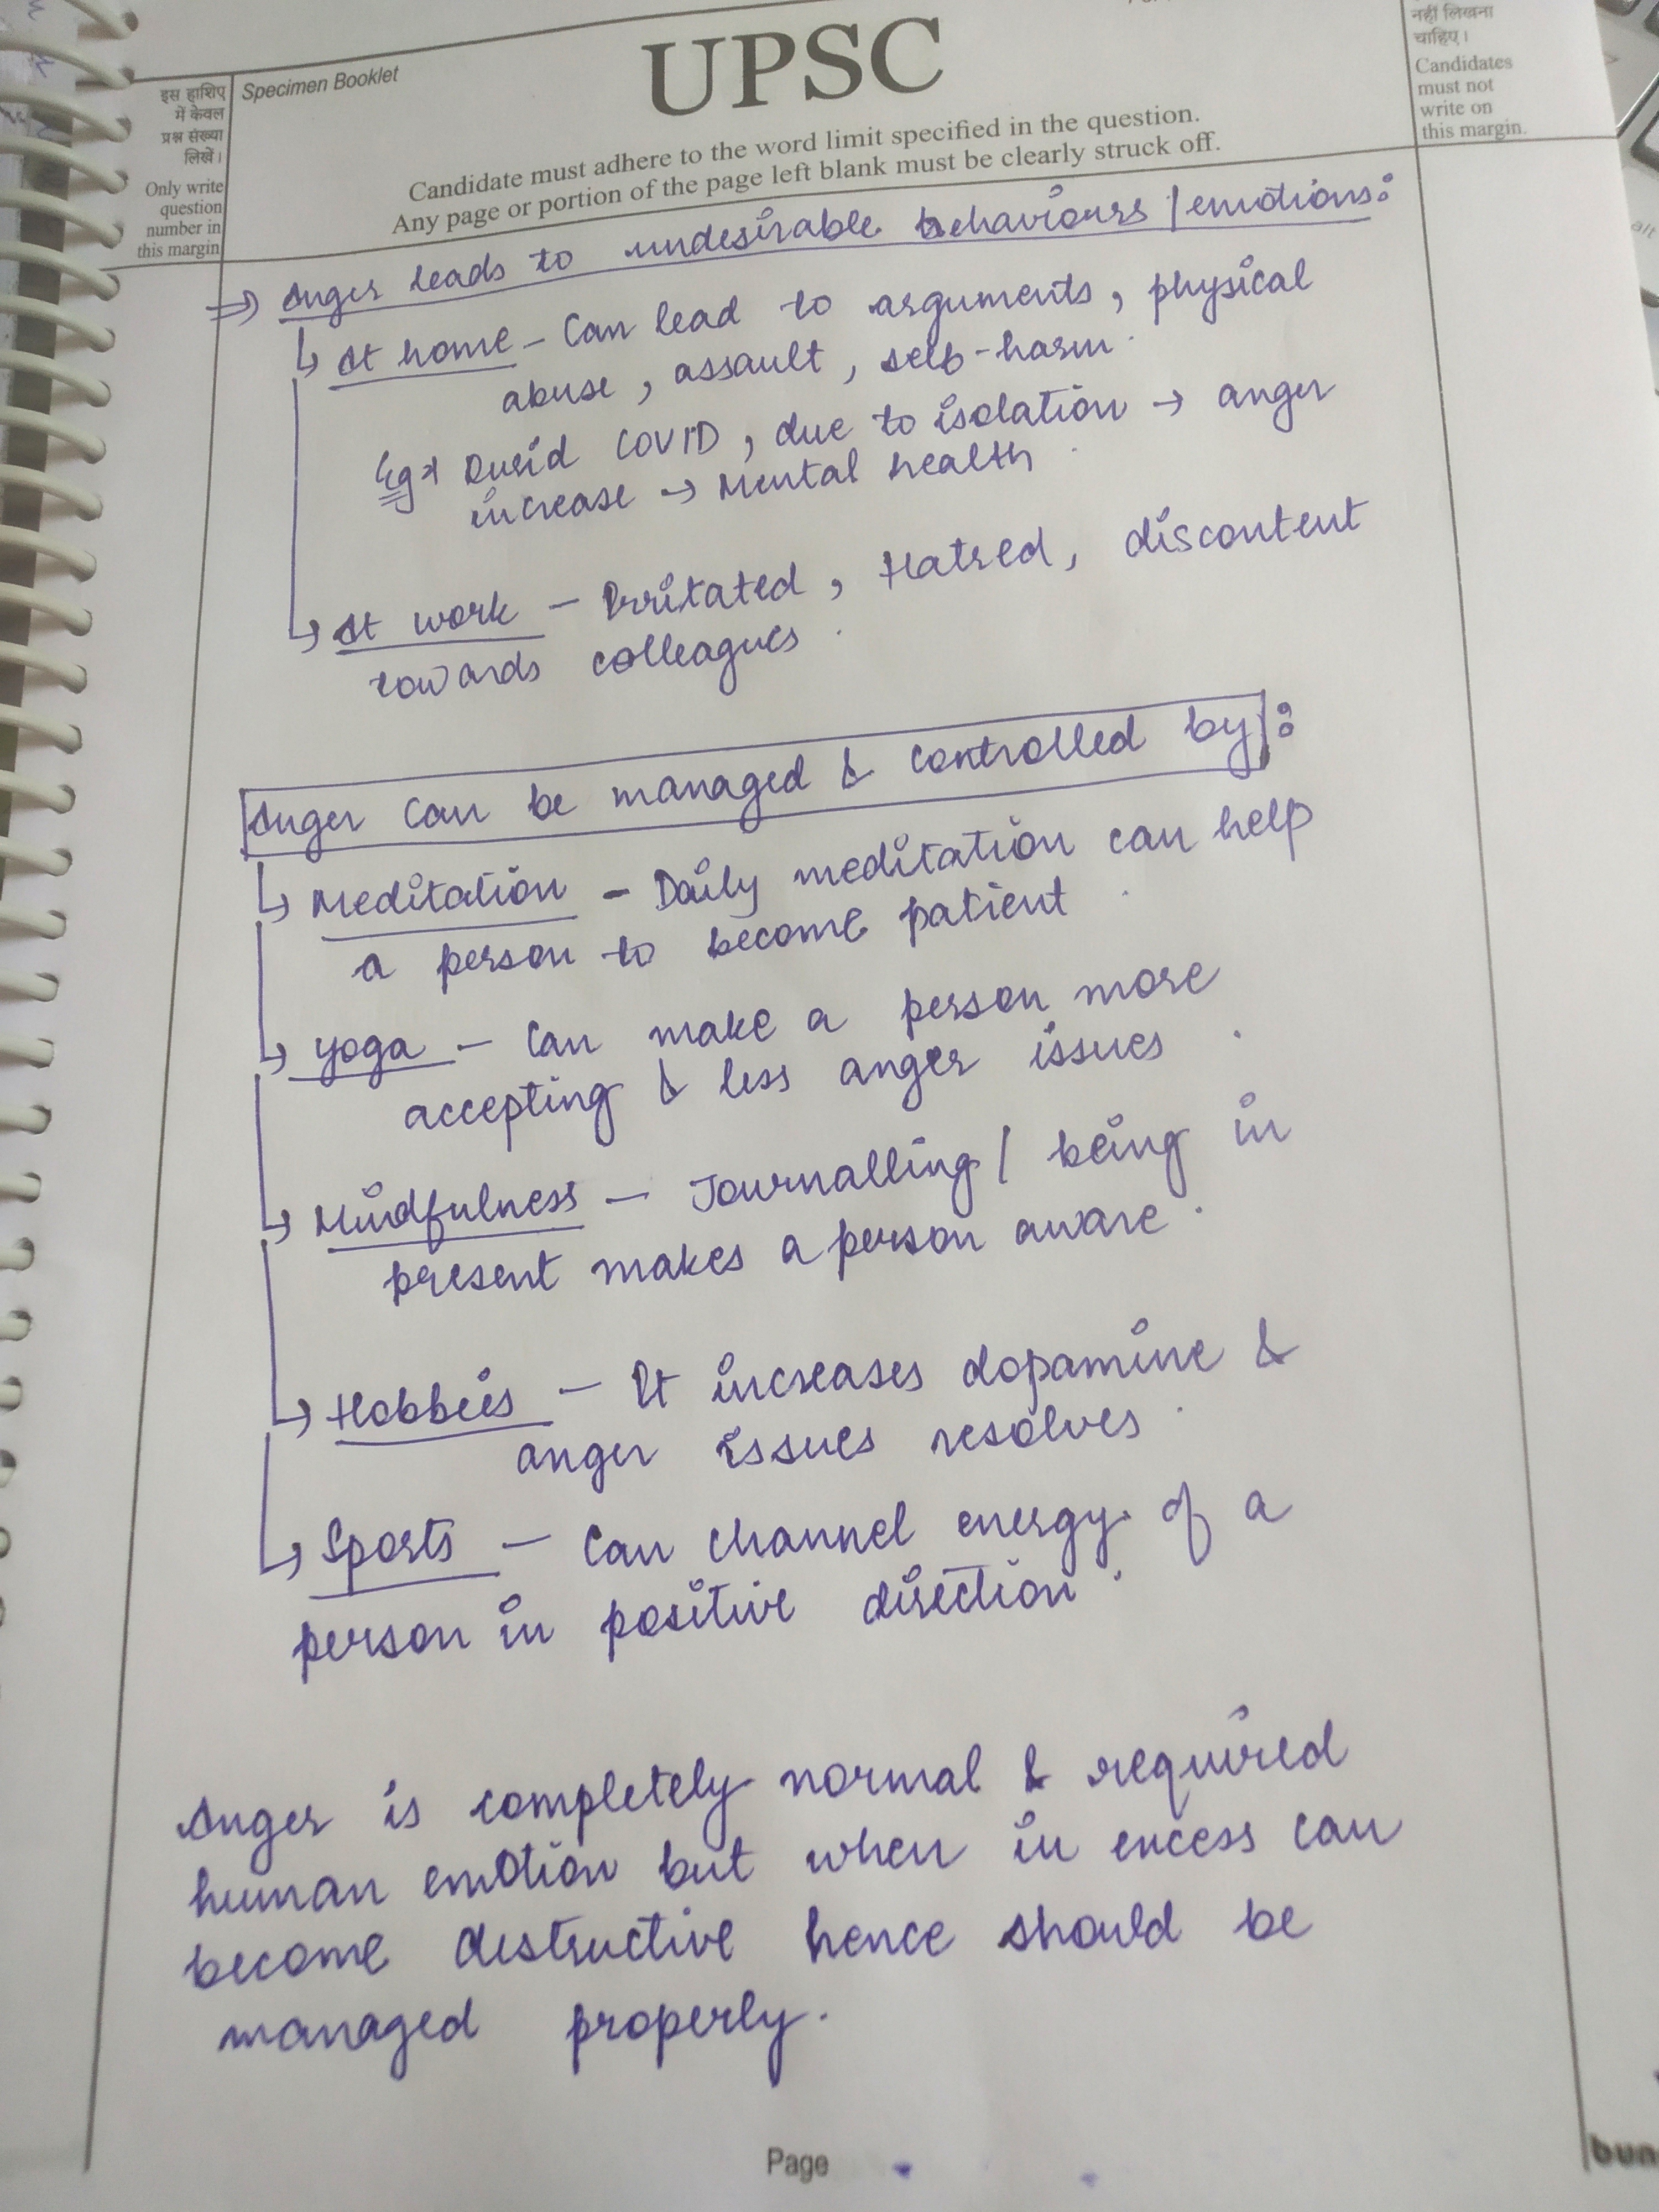 UPSC
Specimen Booklet
Candidate must adhere to the word limit specified in the question.
Any page or portion of the page left blank must be clearly struck off.
इस हाशिए
में केवल
प्रश्न संख्या
लिखें।
Only write
question
number in
this margin
नहीं लिखना
चाहिए।
Candidates
must not
write on
this margin.
⇒ Anger leads to undesirable behaviours / emotions:
↳ At home - Can lead to arguments, physical
abuse, assault, self-harm.
Eg → Durid COVID, due to isolation → anger
increase → Mental health.
↳ At work - Irritated, Hatred, discontent
towards colleagues.
Anger can be managed & controlled by:
↳ Meditation - Daily meditation can help
a person to become patient.
↳ Yoga - Can make a person more
accepting & less anger issues.
↳ Mindfulness - Journalling / being in
present makes a person aware.
↳ Hobbeis - It increases dopamine &
anger issues resolves.
↳ Sports - Can channel energy of a
person in positive direction.
Anger is completely normal & required
human emotion but when in excess can
become destructive hence should be
managed properly.
Page
alt